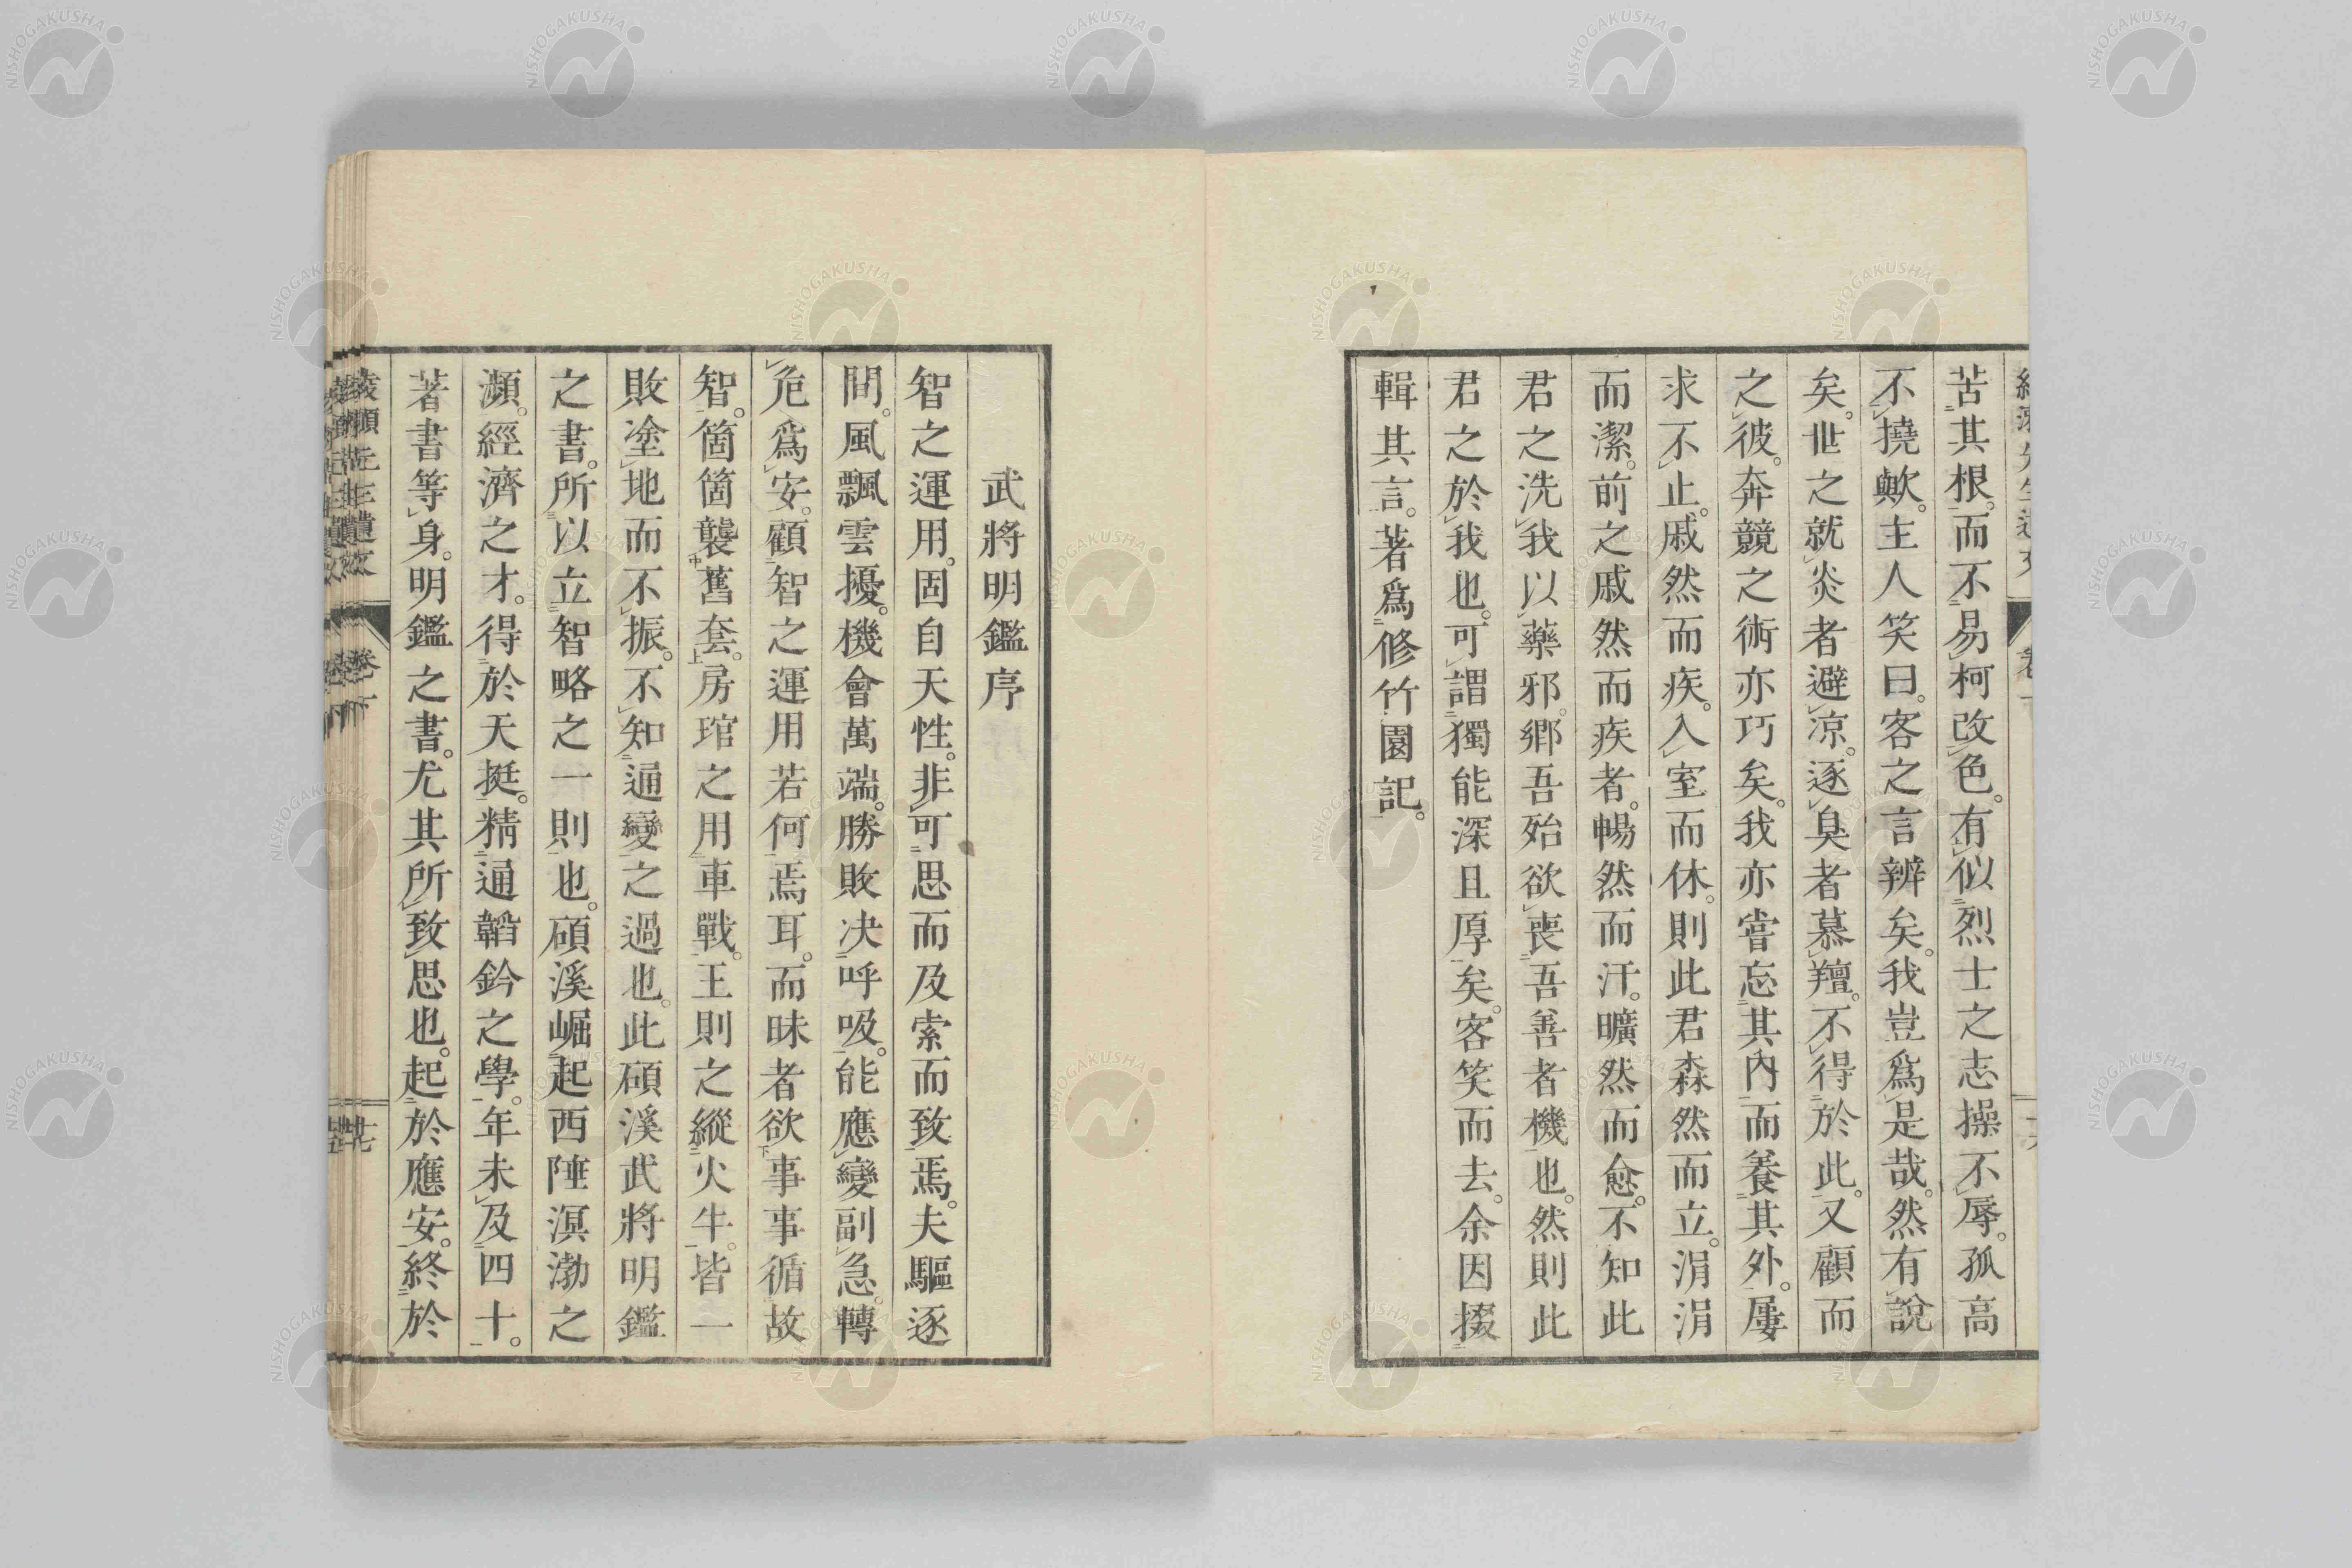 苦其根。而不易柯改色。有似烈士之志操不辱。孤高
不撓歟。主人笑曰。客之言辨矣。我豈爲是哉。然有說
矣。世之就炎者避凉。逐臭者慕羶。不得於此。又顧而
之彼。奔競之術亦巧矣。我亦嘗忘其內而養其外。屢
求不止。戚然而疾。入室而休。則此君森然而立。涓涓
而潔。前之戚然而疾者。暢然而汗。曠然而愈。不知此
君之洗我以藥邪。鄉吾殆欲喪吾善者機也。然則此
君之於我也。可謂獨能深且厚矣。客笑而去。余因掇
輯其言。著爲修竹園記。
武將明鑑序
智之運用。固自天性。非可思而及索而致焉。夫驅逐
間。風飄雲擾。機會萬端。勝敗决呼吸。能應變副急。轉
危爲安。顧智之運用若何焉耳。而昧者欲事事循故
智。箇箇襲舊套。房琯之用車戰。王則之縱火牛。皆一
敗塗地而不振。不知通變之過也。此碩溪武將明鑑
之書。所以立智略之一則也。碩溪崛起西陲溟渤之
瀕。經濟之才。得於天挺。精通韜鈐之學。年未及四十。
著書等身。明鑑之書。尤其所致思也。起於應安。終於
卷下
十七
NISHOGAKUSHA